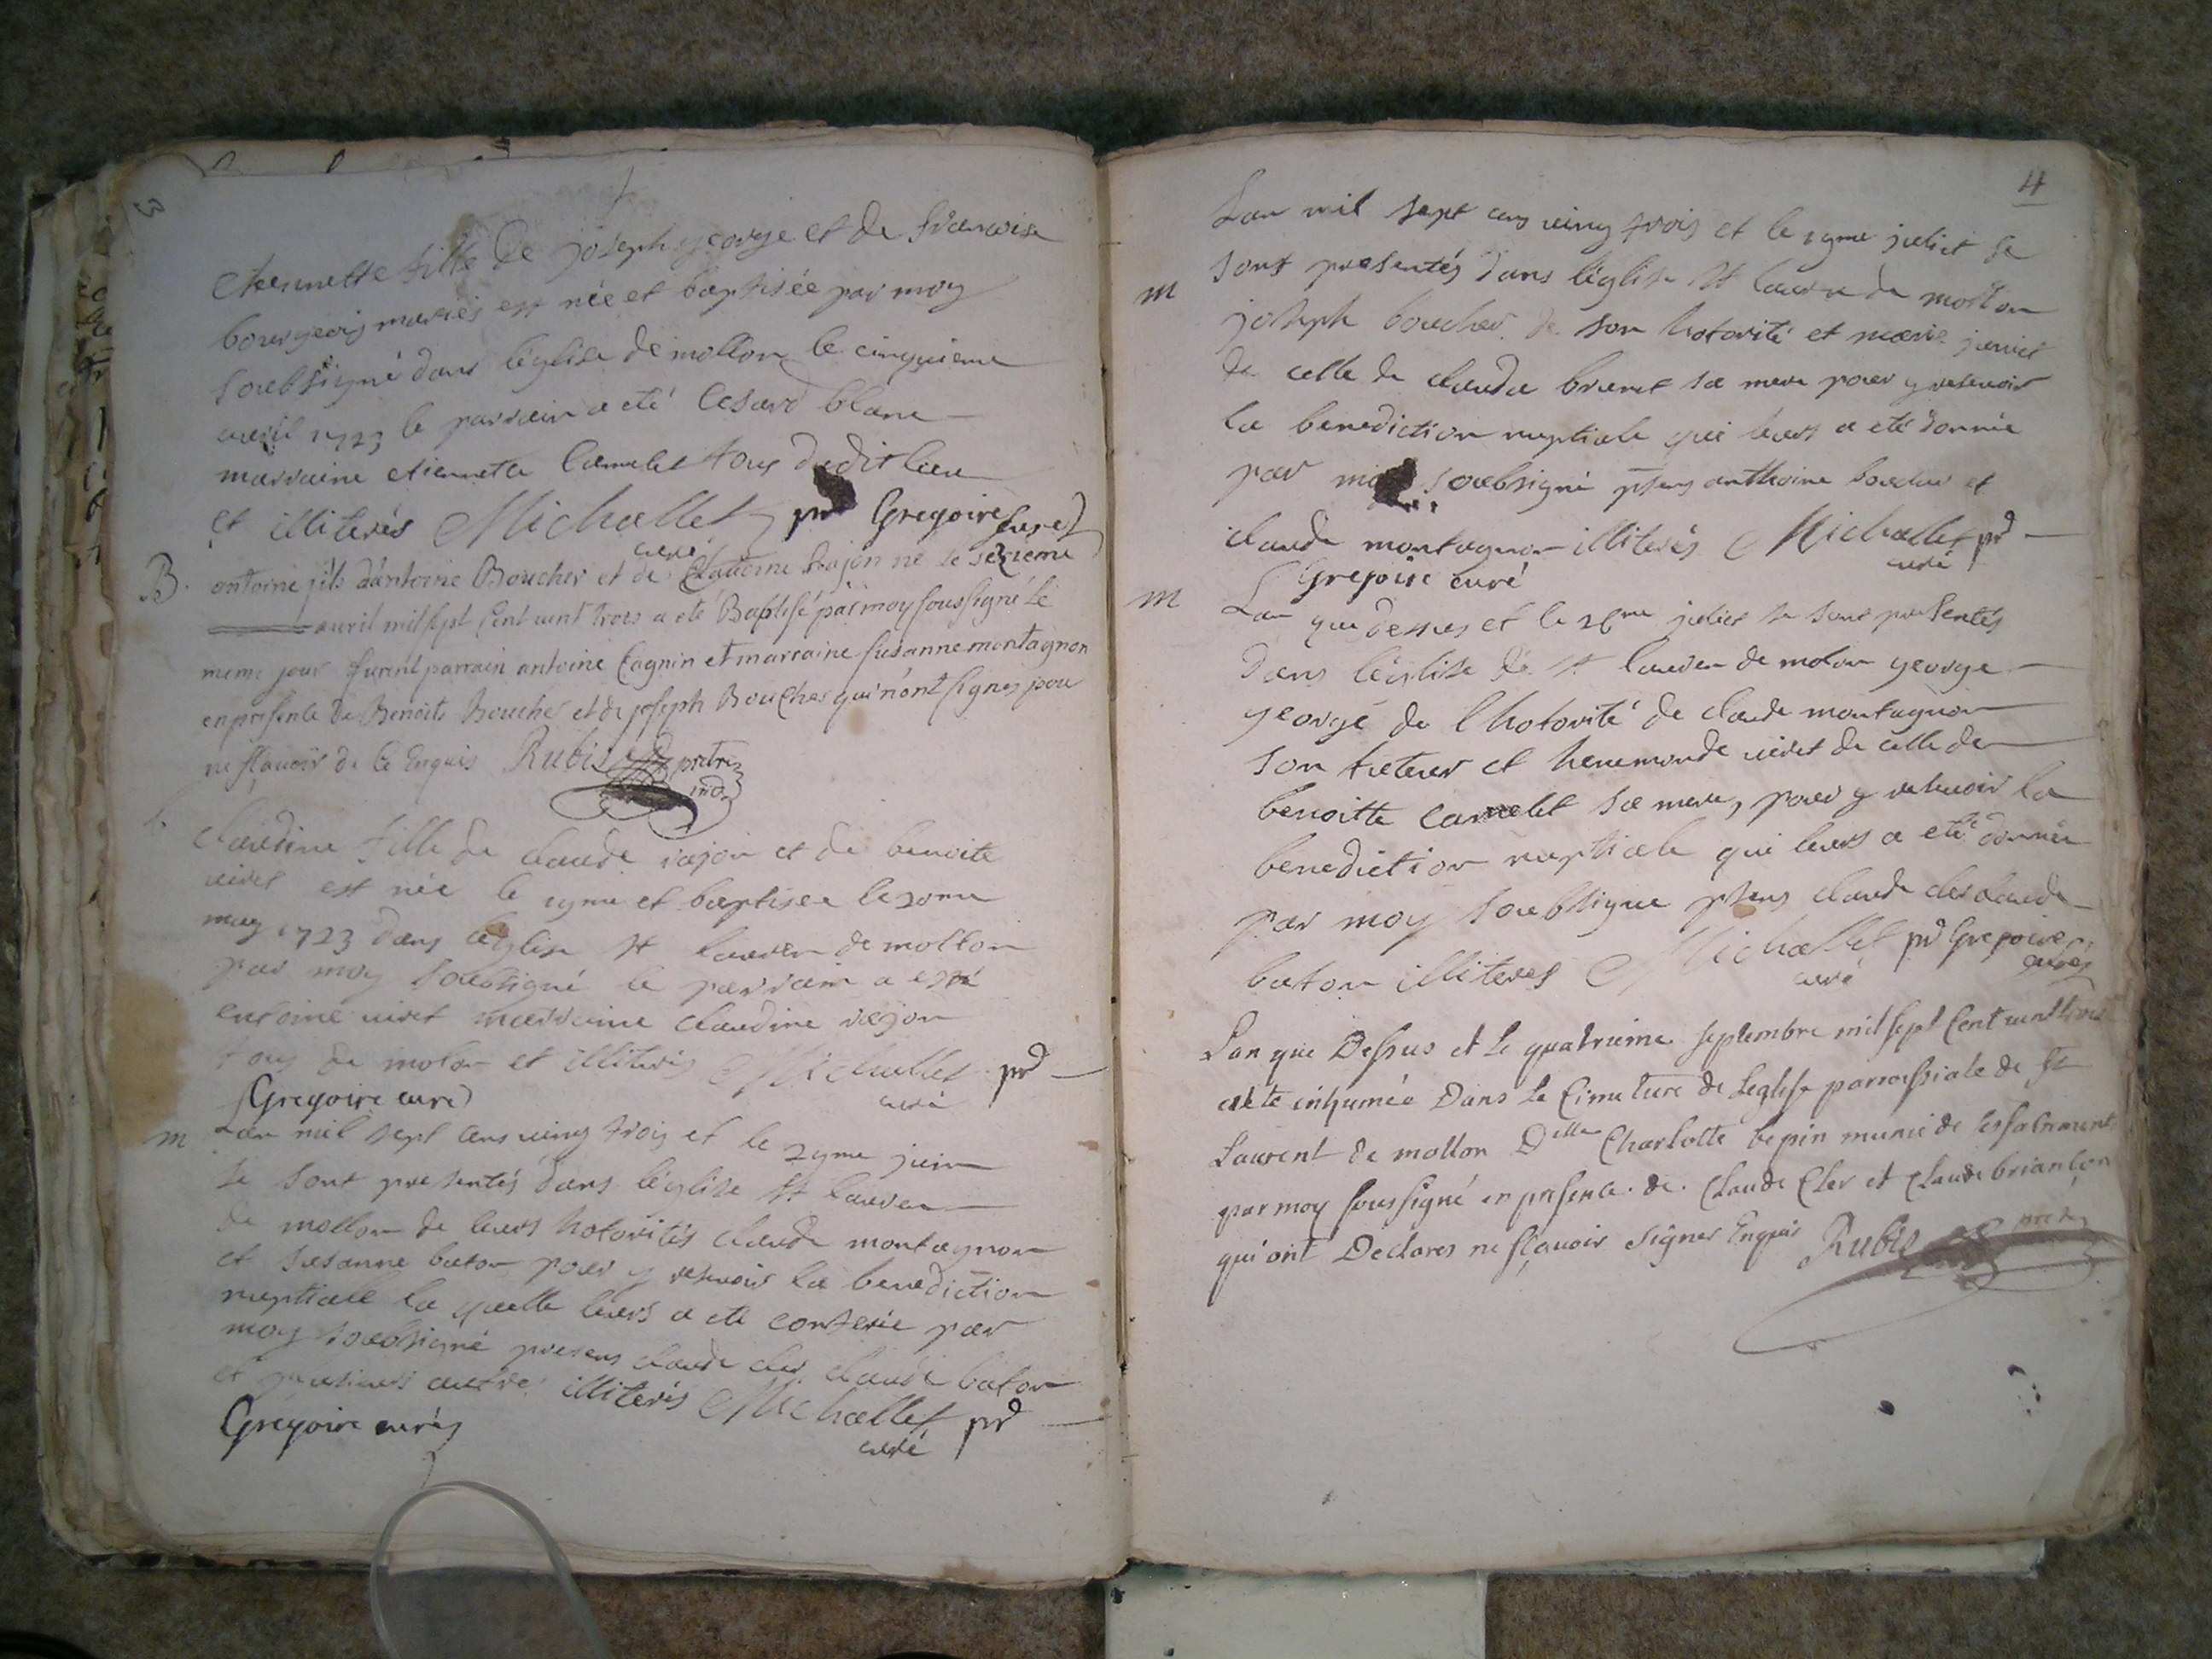 3
etiennette fille de joseph george et de francoise
bourgeois mariés est née et baptisée par moy
soubsigné dans léglise de mollon le cinquieme
avril 1723 le parrain a eté Cesard blanc
marraine etiennette Camelet tous dudit lieu
et illiterés Michallet prd Gregoire Curé
curé
B.
antoine fils dantoine Boucher et de Claudine Rajon né le sezieme
avril mil sept Cent vint trois a eté Baptisé par moy soussigné Le
meme jour furent parrain antoine Cagnin et marraine susanne montagnon
en presence de Benoite Boucher et de joseph Boucher qui n'ont signes pour
ne sçavoir de ce Enquis Rubis pretre
claudine fille de claude rajon et de benoite
viret est née le 19me et baptisee le 20me
may 1723 dans léglise st lauren de mollon
par moy soubsigné le parrain a esté
entoine viret marraine claudine rajon
tous de molon et illiterés Michallet prd
Gregoire curé curé
m
Lan mil sept cens ving trois et le 29me juin
se sont presentés dans léglise st lauren
de mollon de leurs hotorités claude montagnon
et susanne baton pour y resevoir la benediction
nuptiale la quelle leurs a eté conferée par
moy soubsigné presens claude cler claude baton
et plusieurs autre illiterés Michallet prd
Gregoire curé curé
4
m
Lan mil sept cens ving trois et le 19me juliet se
sont presentés dans léglise st lauren de mollon
joseph boucher de son hotorité et marie juenet
de celle de claude brunet sa mere pour y resevoir
la benediction nuptiale qui leurs a eté donnée
par moy soubsigné pnsens anthoine boucher et
claude montagnon illiterés Michallet prd
Gregoire curé curé
m
Lan que dessus et le 26me juliet se sont presentés
dans léglise de st lauren de molon george
george de lhotorité de claude montagnon
son tuteur et henemonde viret de celle de
benoitte camelet sa mere, pour y resevoir la
benediction nuptiale qui leurs a eté donnée
par moy soubsigne pnsens claude cler claude
baton illiteres Michallet prd Gregoire
curé curé
Lan que Dessus et Le quatrieme septembre mil sept Cent vint trois
a ete inhumée Dans Le Cimetiere de Leglise parroissiale de St
Laurent de mollon Dlle Charlotte bepin munie de ses sacrements
par moy soussigné en presence de Claude Cler et Claude briançon
qui ont Declares ne sçavoir signer Enquis Rubis pretre